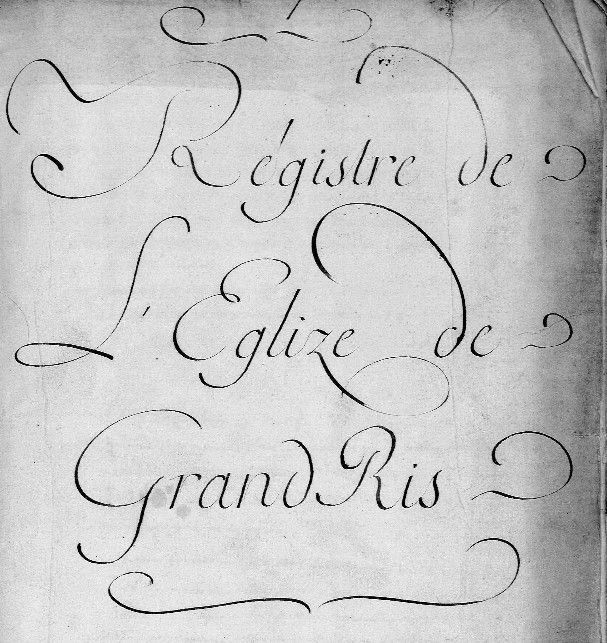 Régistre de
L'Eglize de
Grand Ris